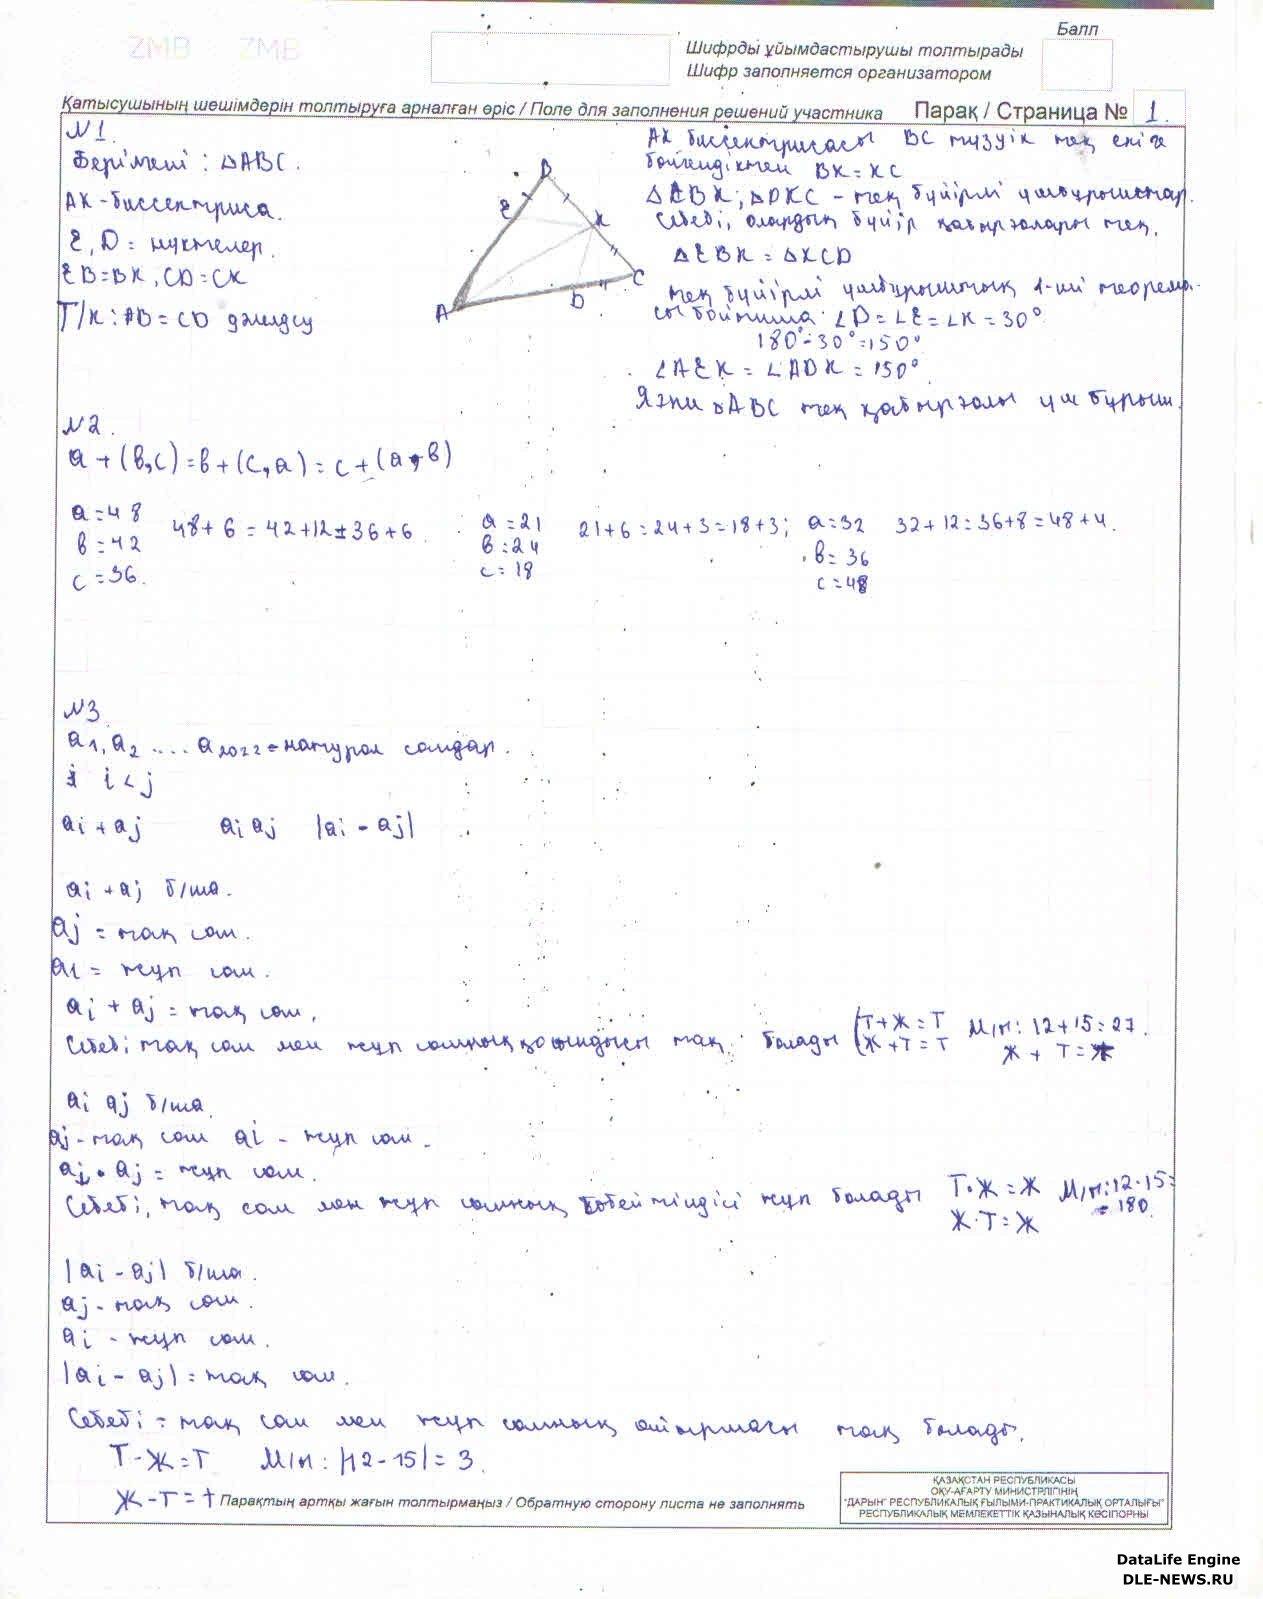 ZMB ZMB
Балл
Шифрды ұйымдастырушы толтырады
Шифр заполняется организатором
Қатысушының шешімдерін толтыруға арналған өріс / Поле для заполнения решений участника Парақ / Страница № 1.
№1.
Берілгені: △ABC.
AK - биссектриса.
E, D = нүктелер.
EB=BK, CD=CK
Т/к: AB = CD дәлелдеу
B
E
K
C
D
A
AK биссектрисасы BC түзуін тең екіге
бөлгендіктен BK = KC
△EBK; △DKC - тең бүйірлі үшбұрыштар.
Себебі, олардың бүйір қабырғалары тең.
△EBK = △KCD
тең бүйірлі үшбұрыштың 1-ші теорема-
сы бойынша ∠D = ∠E = ∠K = 30°
180° - 30° = 150°
∠AEK = ∠ADK = 150°
Яғни △ABC тең қабырғалы үшбұрыш.
№2.
a + (b,c) = b + (c,a) = c + (a,b)
a = 48
b = 42
c = 36.
48 + 6 = 42 + 12 = 36 + 6.
a = 21
b = 24
c = 18
21 + 6 = 24 + 3 = 18 + 3;
a = 32
b = 36
c = 48
32 + 12 = 36 + 8 = 48 + 4.
№3
a1, a2 .... a2022 = натурал сандар.
i < j
ai + aj ai aj |ai - aj|
ai + aj б/ша.
aj = тақ сан.
ai = жұп сан.
ai + aj = тақ сан.
Себебі тақ сан мен жұп санның қосындысы тақ болады
Т + Ж = Т
Ж + Т = Т
М/н: 12 + 15 = 27.
Ж + Т =
ai aj б/ша.
aj - тақ сан ai - жұп сан.
ai • aj = жұп сан.
Себебі, тақ сан мен жұп санның көбейтіндісі жұп болады
Т•Ж = Ж
Ж•Т = Ж
М/н: 12·15 =
= 180.
|ai - aj| б/ша.
aj - тақ сан.
ai - жұп сан.
|ai - aj| = тақ сан.
Себебі = тақ сан мен жұп санның айырмасы тақ болады.
Т - Ж = Т М/н: |12 - 15| = 3.
Ж - Т = Т
Парақтың артқы жағын толтырмаңыз / Обратную сторону листа не заполнять
ҚАЗАҚСТАН РЕСПУБЛИКАСЫ
ОҚУ-АҒАРТУ МИНИСТРЛІГІНІҢ
"ДАРЫН" РЕСПУБЛИКАЛЫҚ ҒЫЛЫМИ-ПРАКТИКАЛЫҚ ОРТАЛЫҒЫ"
РЕСПУБЛИКАЛЫҚ МЕМЛЕКЕТТІК ҚАЗЫНАЛЫҚ КӘСІПОРНЫ
DataLife Engine
DLE-NEWS.RU